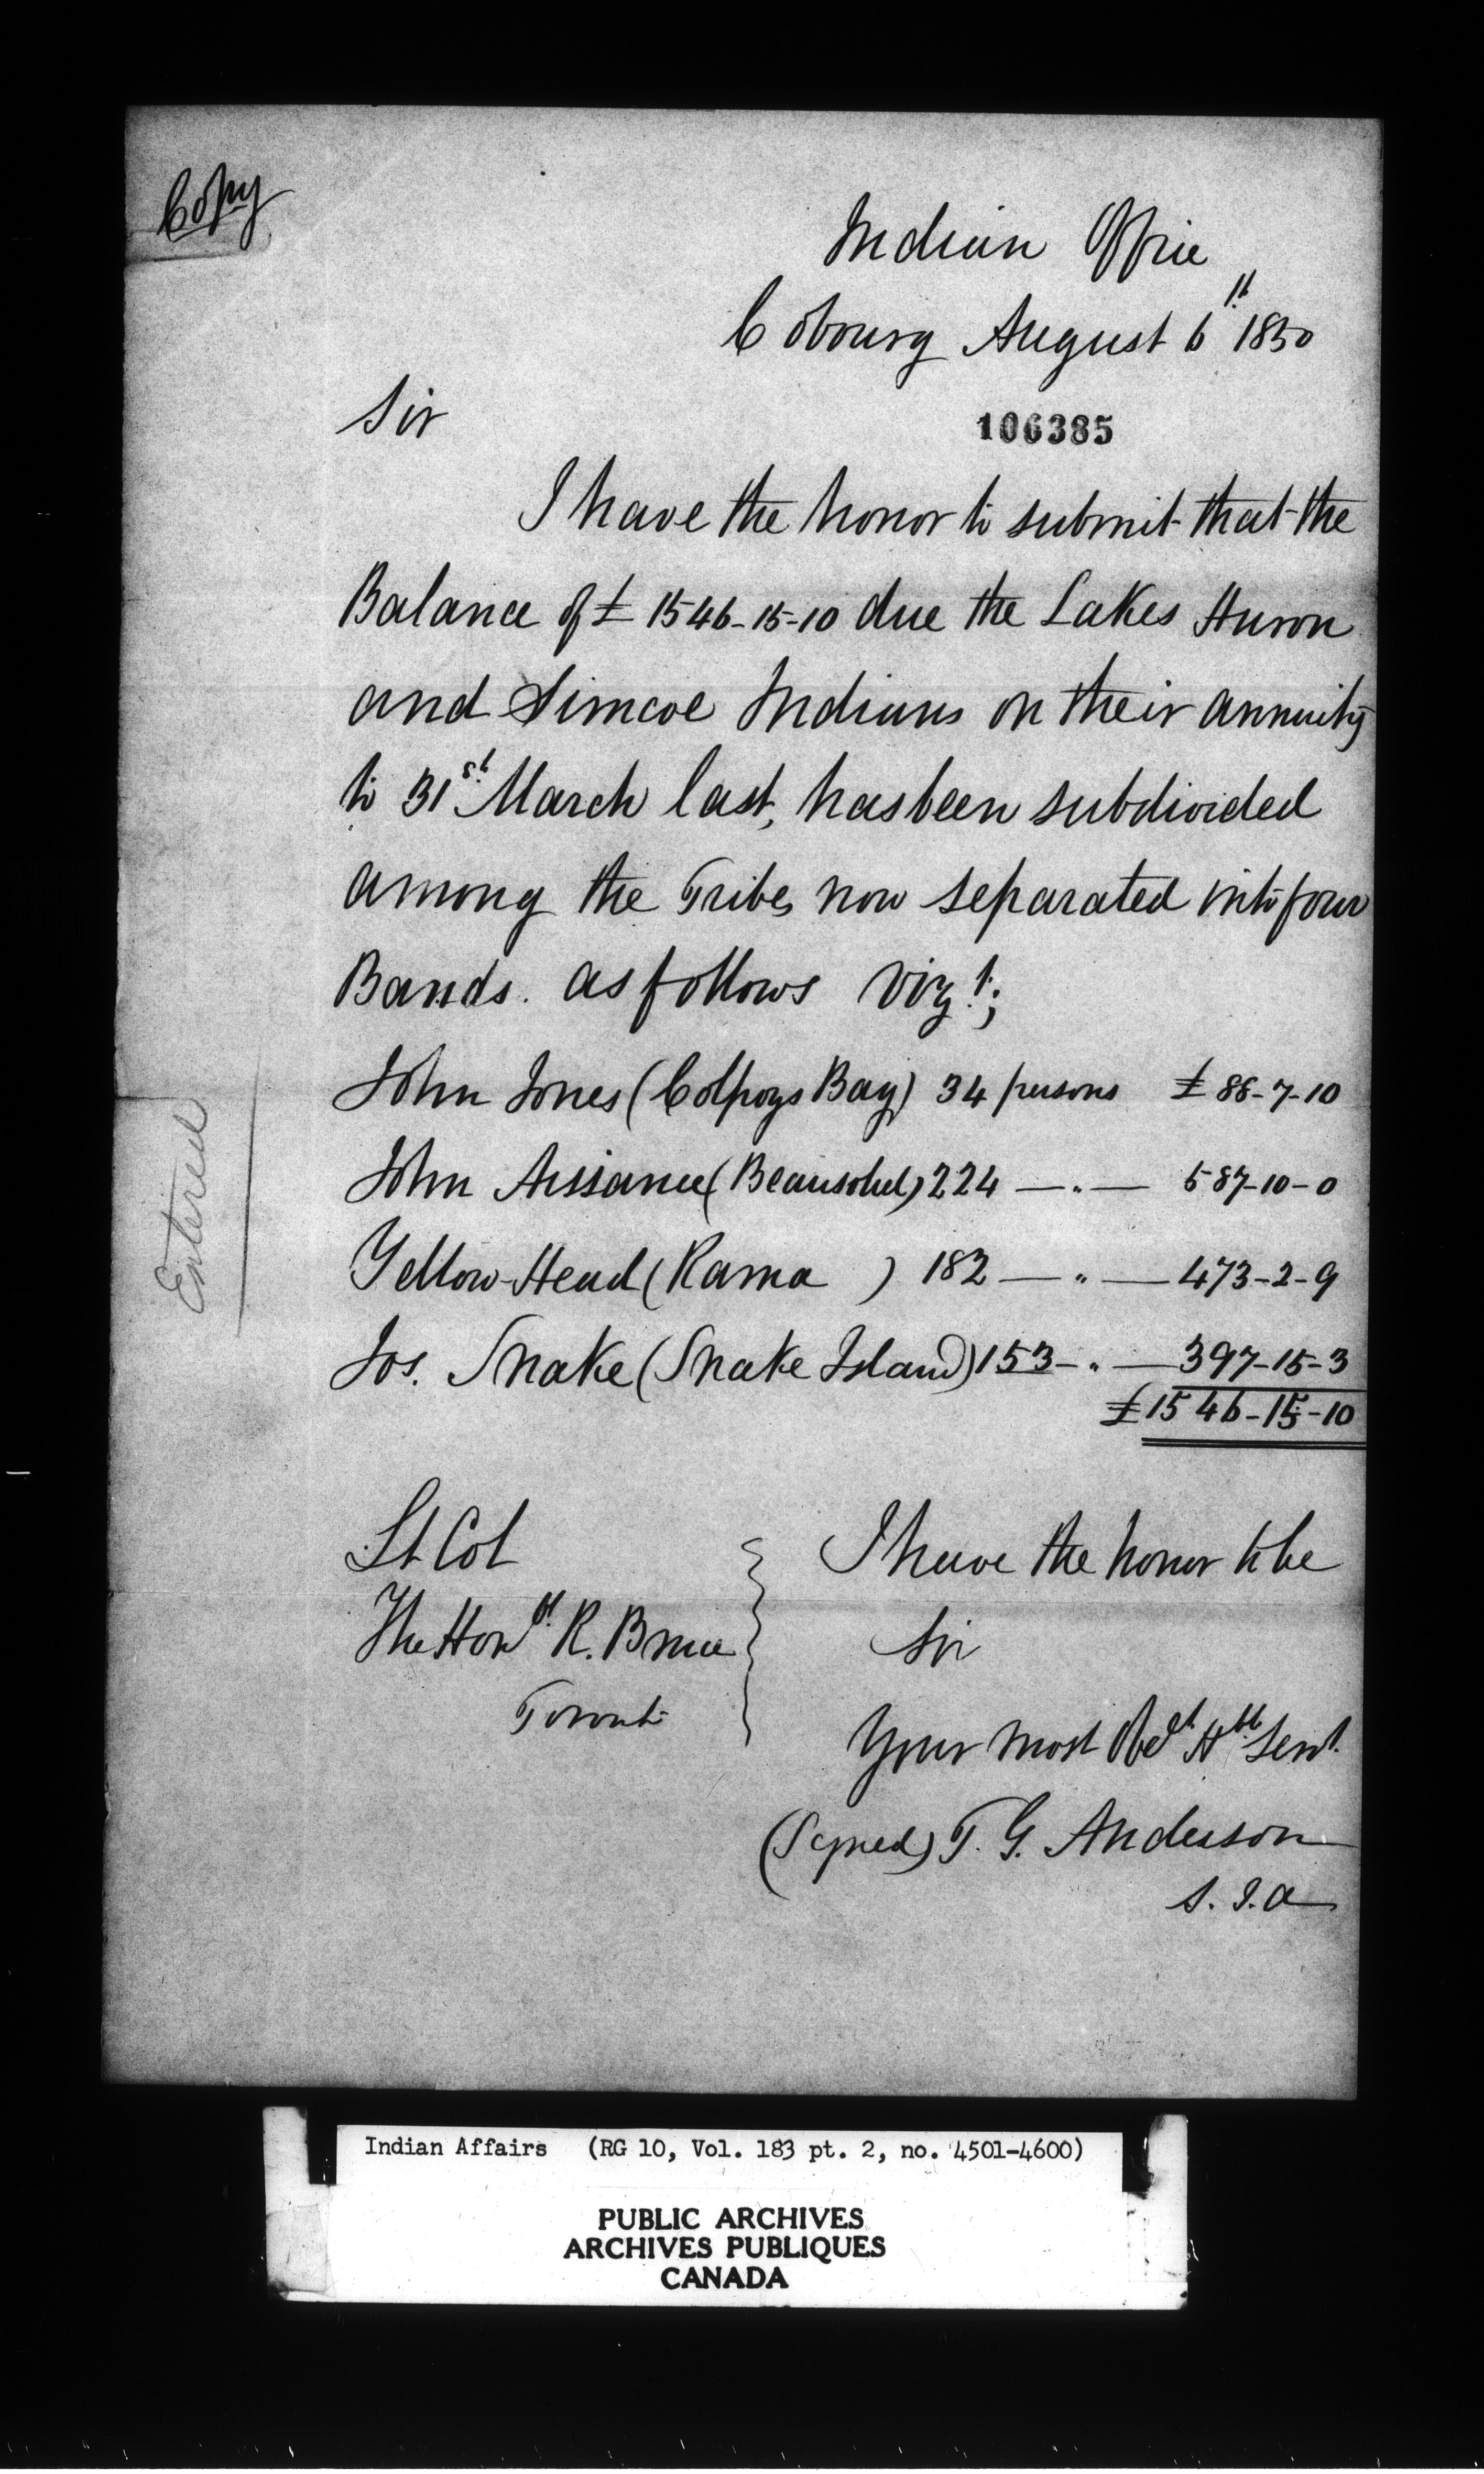 Copy
Indian Office
Cobourg August 6th 1850
106385
Sir
I have the honor to submit that the
Balance of £1546-15-10 due the Lakes Huron
and Simcoe Indians on their annuity
to 31st March last, has been subdivided
among the Tribes now separated into four
Bands. as follows vizt;
John Jones (Colpoys Bay) 34 persons £88-7-10
John Aissance (Beausoliel) 224 —"— 587-10-0
Yellow Head (Rama ) 182 —"— 473-2-9
Jos. Snake (Snake Island) 153 —"— 397-15-3
£1546-15-10
Entered
Lt Col
The Honbl R. Bruce
Toronto
I have the honor to be
Sir
Your most Obedt Hble Servt.
(Signed) T. G. Anderson
S. I. A
Indian Affairs (RG 10, Vol. 183 pt. 2, no. 4501-4600)
PUBLIC ARCHIVES
ARCHIVES PUBLIQUES
CANADA